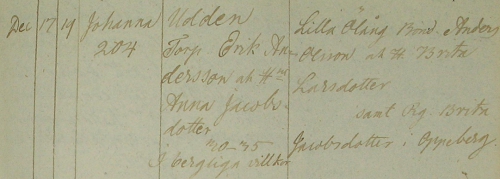 Dec 17 19 Johanna
204
Udden
Torp. Erik An-
dersson ah H.
Anna Jacobs-
dotter
30-35
I bergliga villkor
Lilla Ölång Bond. Anders
Olsson ah H. Brita
Larsdotter
samt Pig. Brita
Jacobsdotter i Oppeberg.